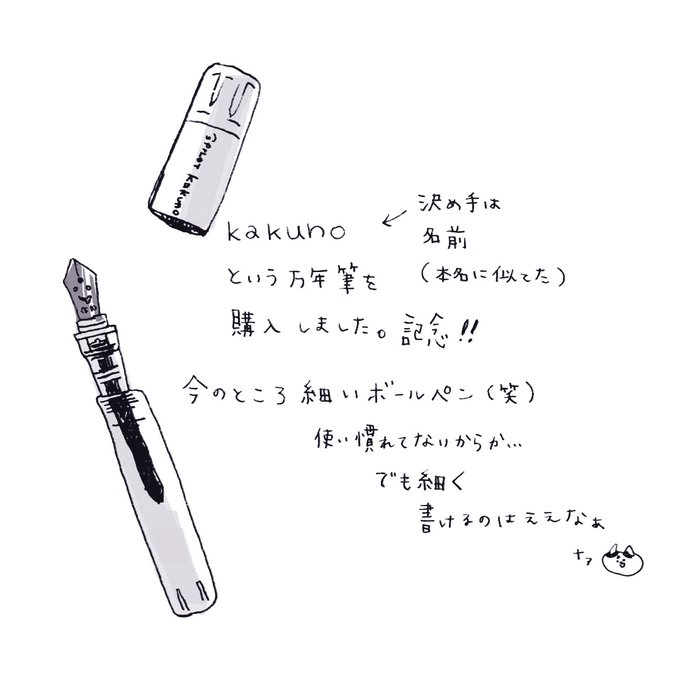 PILOT kakuno
kakuno
という万年筆を
購入しました。記念!!
決め手は
名前
(本名に似てた)
今のところ細いボールペン(笑)
使い慣れてないからか...
でも細く
書けるのはええなぁ
ナァ